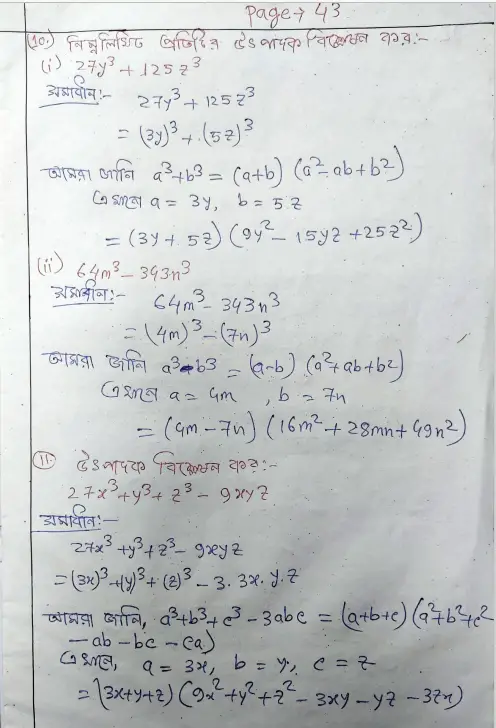 Page → 43
(10.) নিম্নলিখিত প্রতিটির উৎপাদক বিশ্লেষণ কর:-
(i) 27y³ + 125z³
সমাধান:- 27y³ + 125z³
= (3y)³ + (5z)³
আমরা জানি a³+b³ = (a+b) (a²-ab+b²)
এখানে a = 3y, b = 5z
= (3y + 5z) (9y² - 15yz + 25z²)
(ii) 64m³ - 343n³
সমাধান:- 64m³ - 343n³
= (4m)³ - (7n)³
আমরা জানি a³-b³ = (a-b) (a²+ab+b²)
এখানে a = 4m , b = 7n
= (4m - 7n) (16m² + 28mn + 49n²)
(11) উৎপাদক বিশ্লেষণ কর:-
27x³+y³+z³ - 9xyz
সমাধান:-
27x³+y³+z³ - 9xyz
= (3x)³+(y)³+(z)³ - 3. 3x. y. z
আমরা জানি, a³+b³+c³ - 3abc = (a+b+c) (a²+b²+c²
- ab - bc - ca)
এখানে, a = 3x, b = y, c = z
= (3x+y+z) (9x²+y²+z² - 3xy - yz - 3zx)